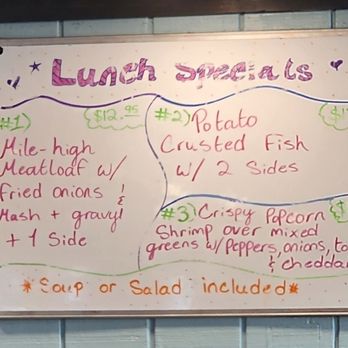 Lunch Specials
#1) $12.95
Mile-high
Meatloaf w/
fried onions &
Mash + gravy!
+ 1 Side
#2) Potato
Crusted Fish
w/ 2 Sides
#3) Crispy Popcorn
Shrimp over mixed
greens w/ Peppers, onions,
& cheddar
*Soup or Salad included*